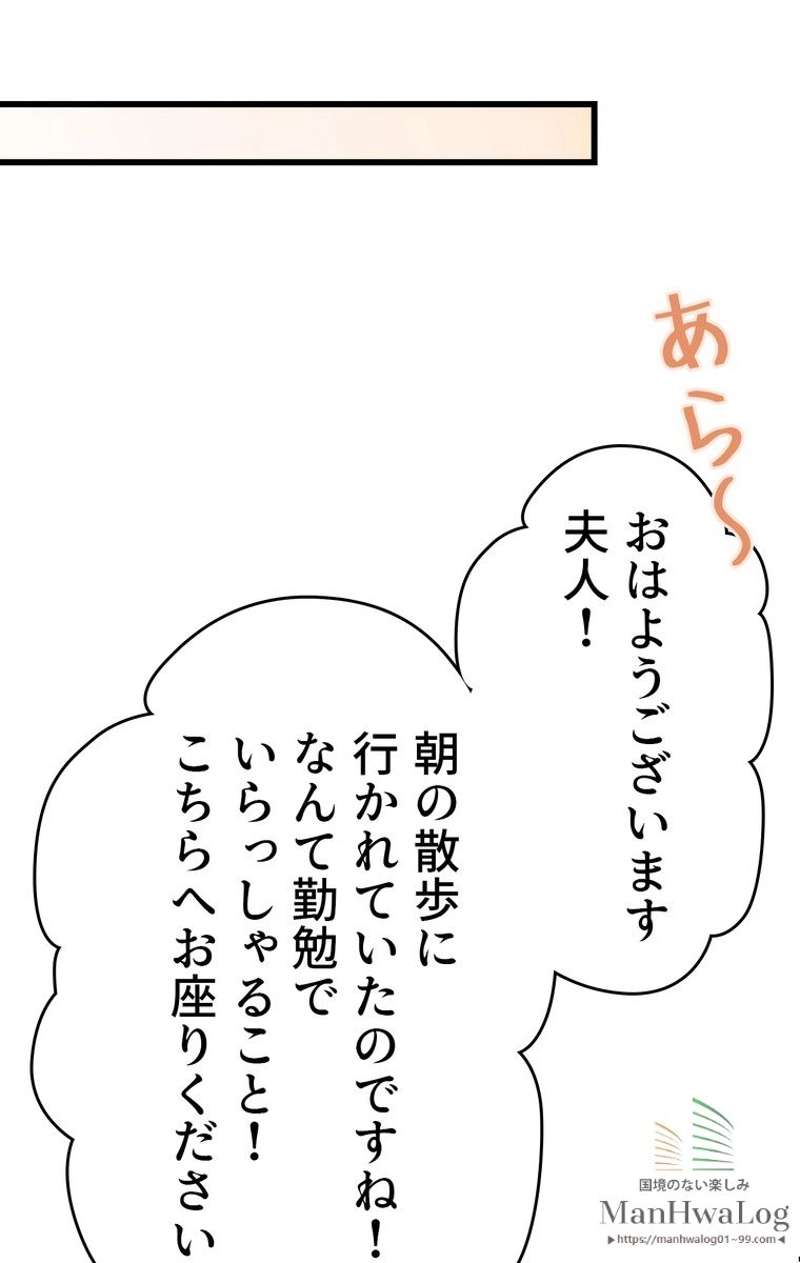 あら〜
おはようございます
夫人！
朝の散歩に
行かれていたのですね！
なんて勤勉で
いらっしゃること！
こちらへお座りください
国境のない楽しみ
ManHwaLog
▶https://manhwalog01~99.com◀